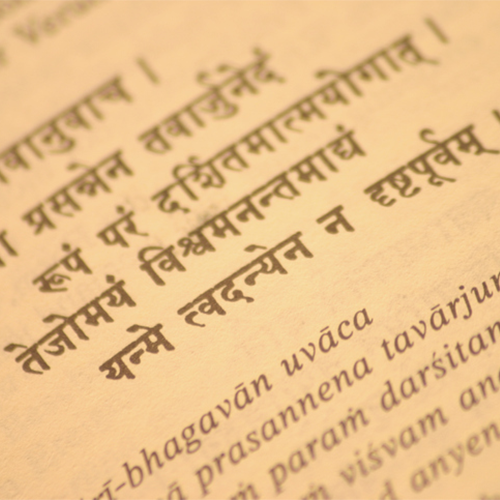 वानुवाच ।
प्रसन्नेन तवार्जुनेदं
रूपं परं दर्शितमात्मयोगात् ।
तेजोमयं विश्वमनन्तमाद्यं
यन्मे त्वदन्येन न दृष्टपूर्वम्
rī-bhagavān uvāca
prasannena tavārjun
paraṁ darśitam
viśvam
anyen